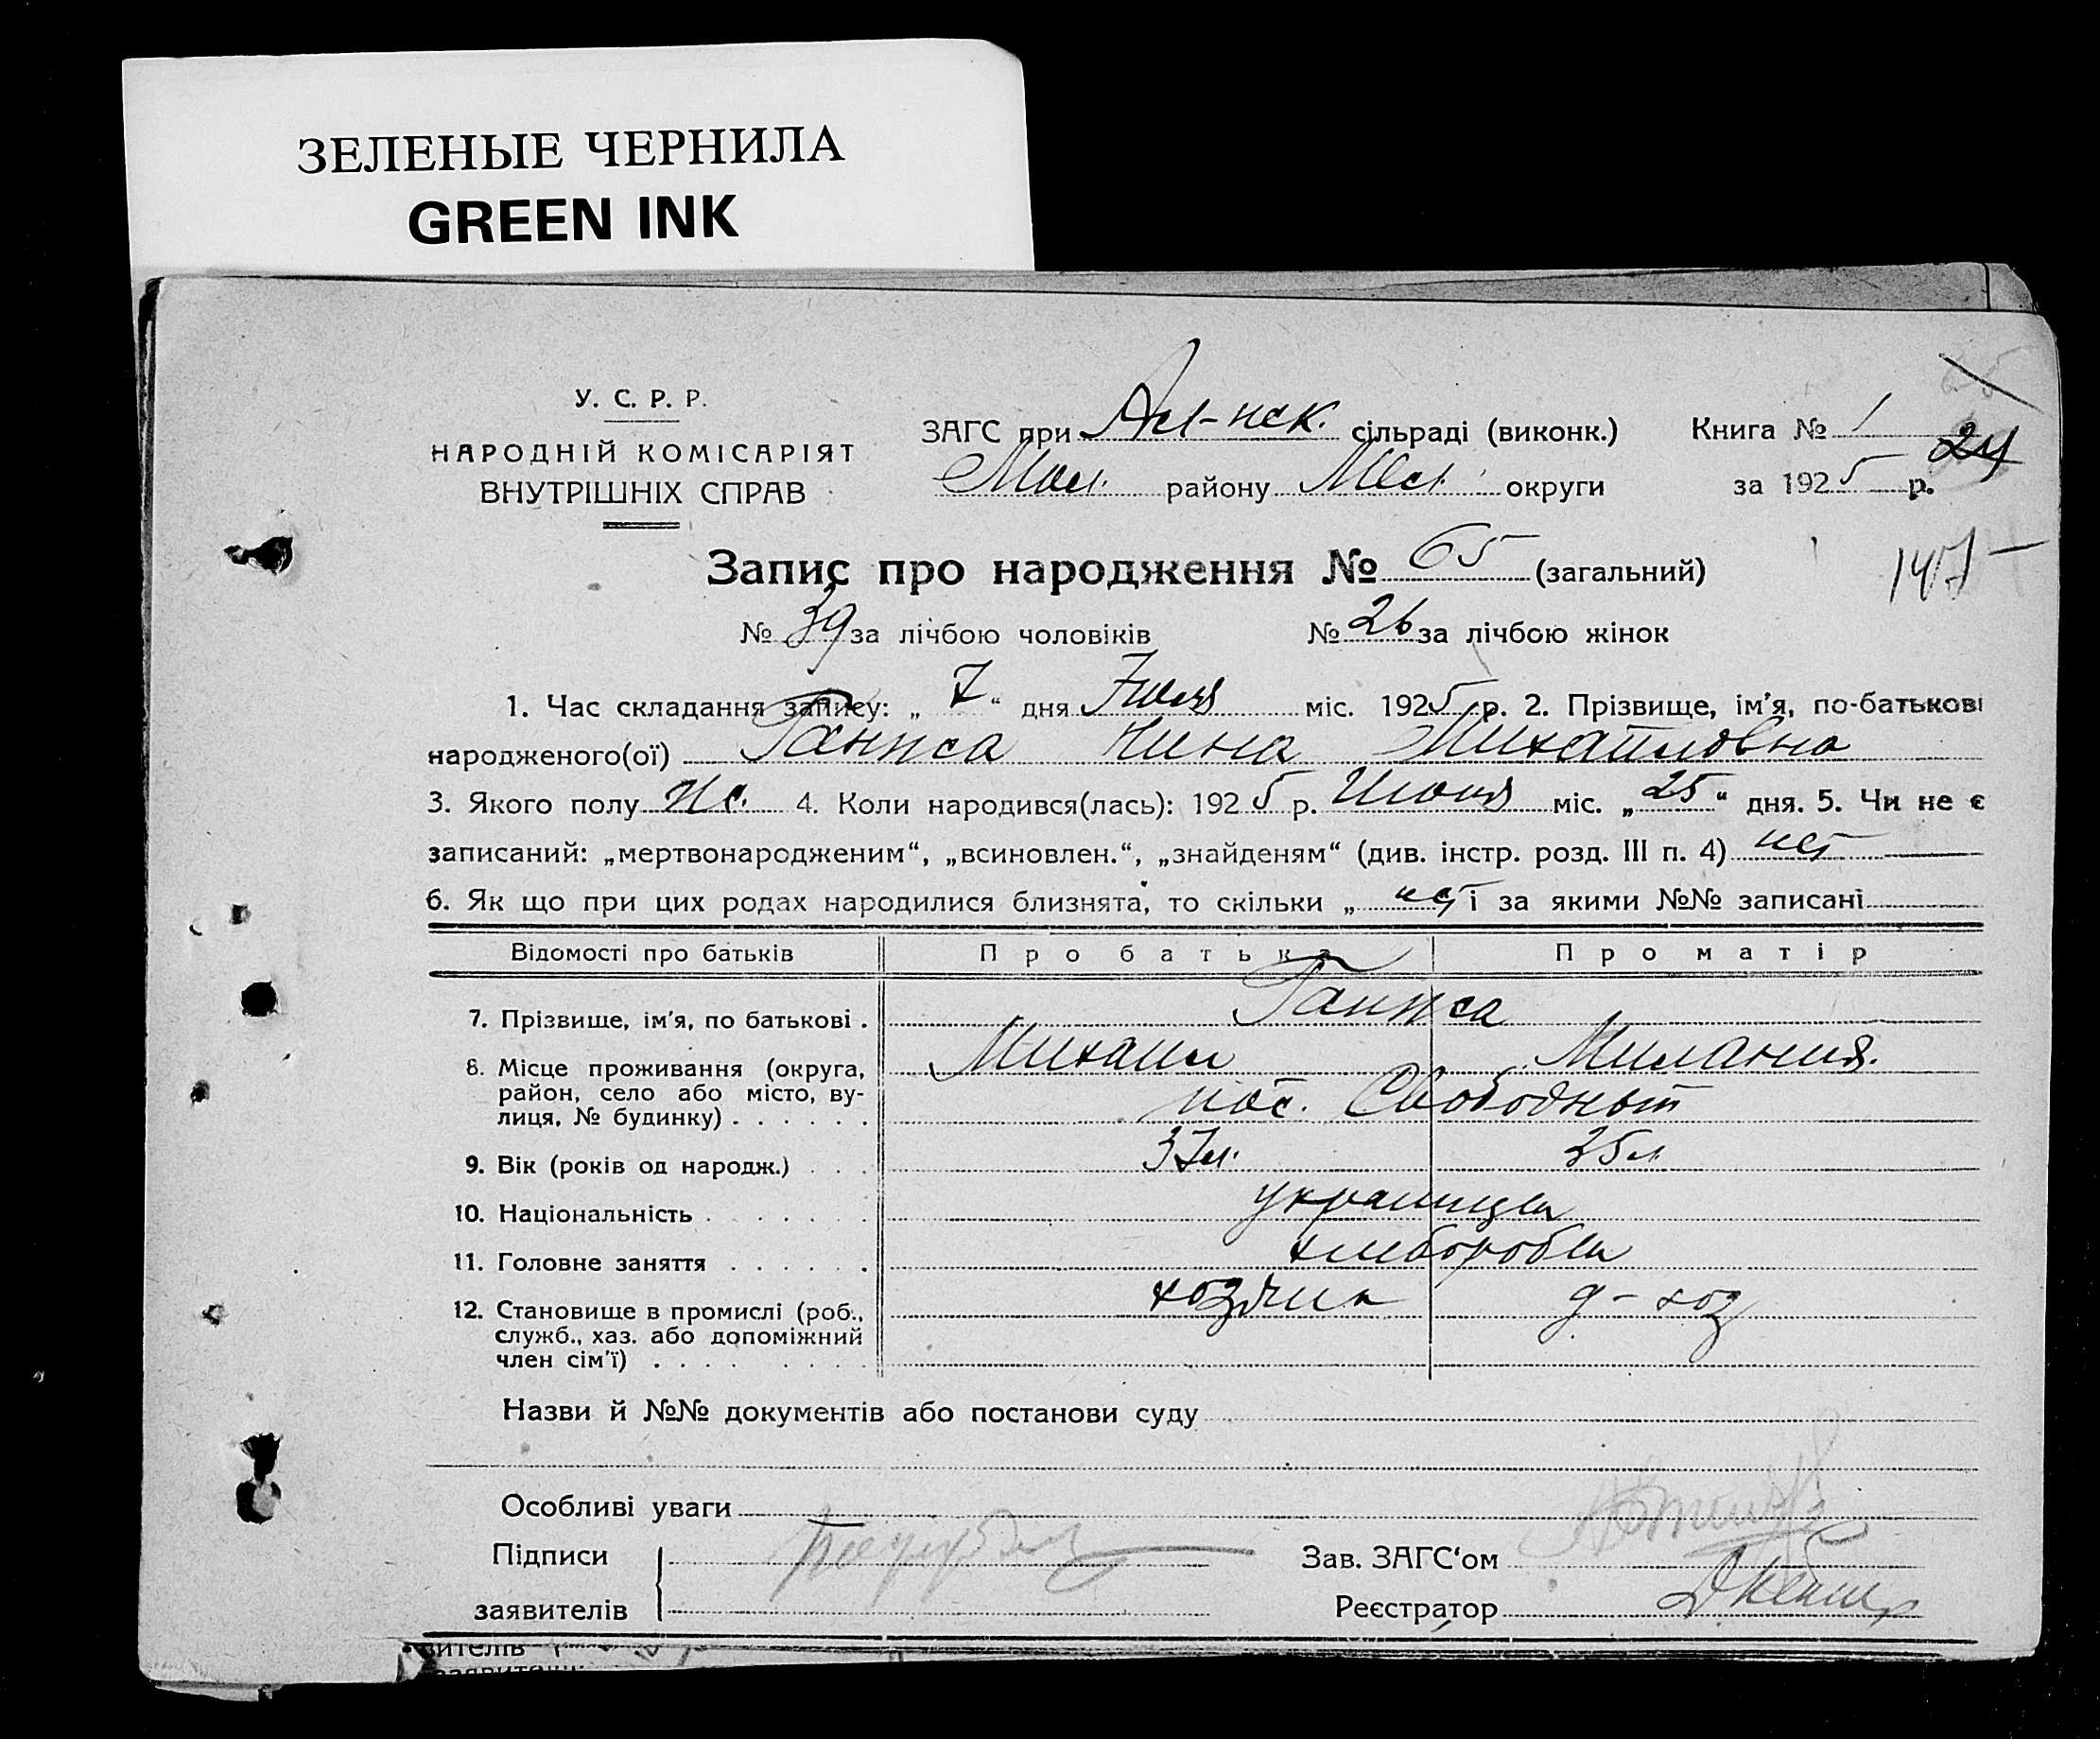 ЗЕЛЕНЫЕ ЧЕРНИЛА
GREEN INK
У. С. Р. Р.
НАРОДНІЙ КОМІСАРІЯТ
ВНУТРІШНІХ СПРАВ
ЗАГС при сільраді (виконк.)
району округи
Книга № 1
24
за 1925 р.
Запис про народження № 65 (загальний)
147
№ 39 за лічбою чоловіків № 26 за лічбою жінок
1. Час складання запису: „ 7 “ дня Июля міс. 1925 р. 2. Прізвище, ім'я, по-батькові
народженого(ої) Нина Михайловна
3. Якого полу 4. Коли народився(лась): 1925 р. Июня міс. „ 25 “ дня. 5. Чи не є
записаний: „мертвонародженим“, „всиновлен.“, „знайденям“ (див. інстр. розд. III п. 4) нет
6. Як що при цих родах народилися близнята, то скільки „ нет і за якими №№ записані
Відомості про батьків Про батька Про матір
7. Прізвище, ім'я, по батькові .
8. Місце проживання (округа, Михаил Милания.
район, село або місто, ву-
лиця, № будинку) . . . . . . пос. Свободный
9. Вік (років од народж.) . . . 37 л. 25 л
10. Національність . . . . . . украинцы
11. Головне заняття . . . . . . хлеборобы
12. Становище в промислі (роб., хозяин д-хоз
служб., хаз. або допоміжний
член сім'ї) . . . . . . . .
Назви й №№ документів або постанови суду
Особливі уваги
Підписи Зав. ЗАГС‘ом
заявителів Реєстратор